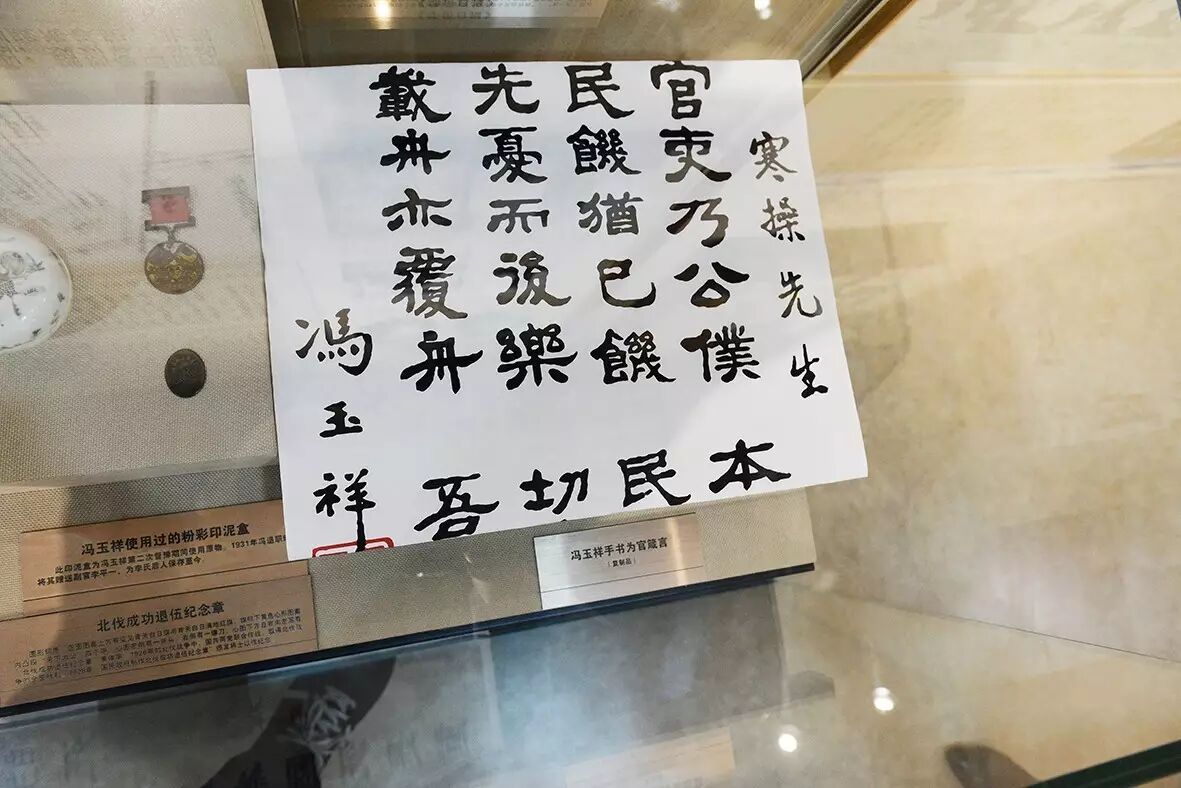 寒操先生
官吏乃公僕 本
民饑猶己饑 民
先憂而後樂 切
載舟亦覆舟 吾
馮玉祥
冯玉祥使用过的粉彩印泥盒
此印泥盒为冯玉祥第二次督豫期间使用原物。1931年冯退职
将其赠送副官李平一，为李氏后人保存至今。
北伐成功退伍纪念章
冯玉祥手书为官箴言
（复制品）